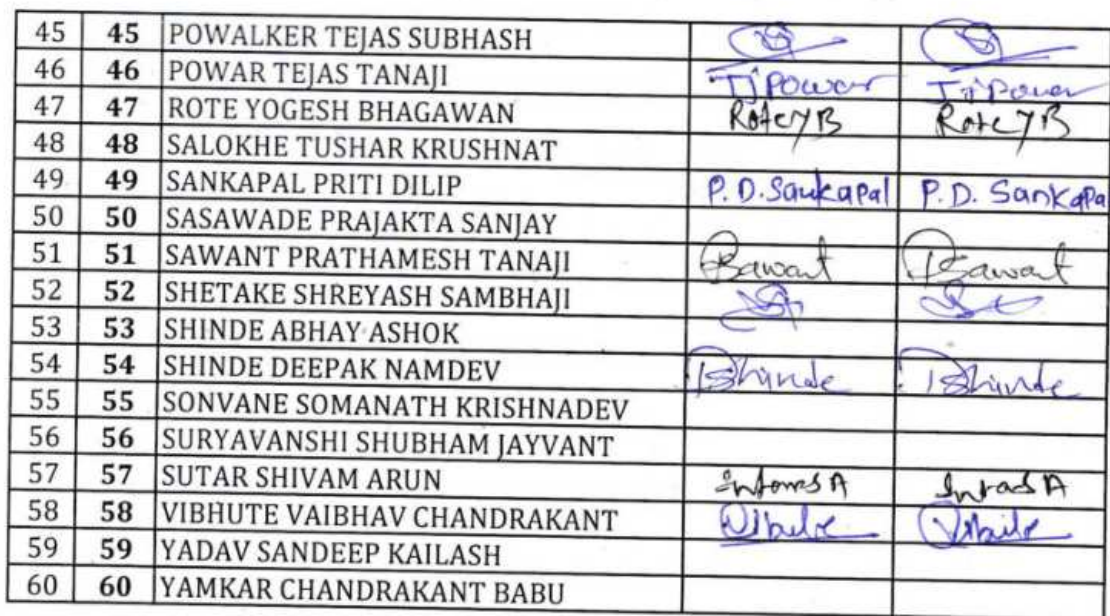 45 45 POWALKER TEJAS SUBHASH
46 46 POWAR TEJAS TANAJI TjPowar TjPowar
47 47 ROTE YOGESH BHAGAWAN RoteYB RoteYB
48 48 SALOKHE TUSHAR KRUSHNAT
49 49 SANKAPAL PRITI DILIP P.D.Sankapal P.D. Sankapa
50 50 SASAWADE PRAJAKTA SANJAY
51 51 SAWANT PRATHAMESH TANAJI PSawant PSawant
52 52 SHETAKE SHREYASH SAMBHAJI
53 53 SHINDE ABHAY ASHOK
54 54 SHINDE DEEPAK NAMDEV DShinde DShinde
55 55 SONVANE SOMANATH KRISHNADEV
56 56 SURYAVANSHI SHUBHAM JAYVANT
57 57 SUTAR SHIVAM ARUN
58 58 VIBHUTE VAIBHAV CHANDRAKANT
59 59 YADAV SANDEEP KAILASH
60 60 YAMKAR CHANDRAKANT BABU